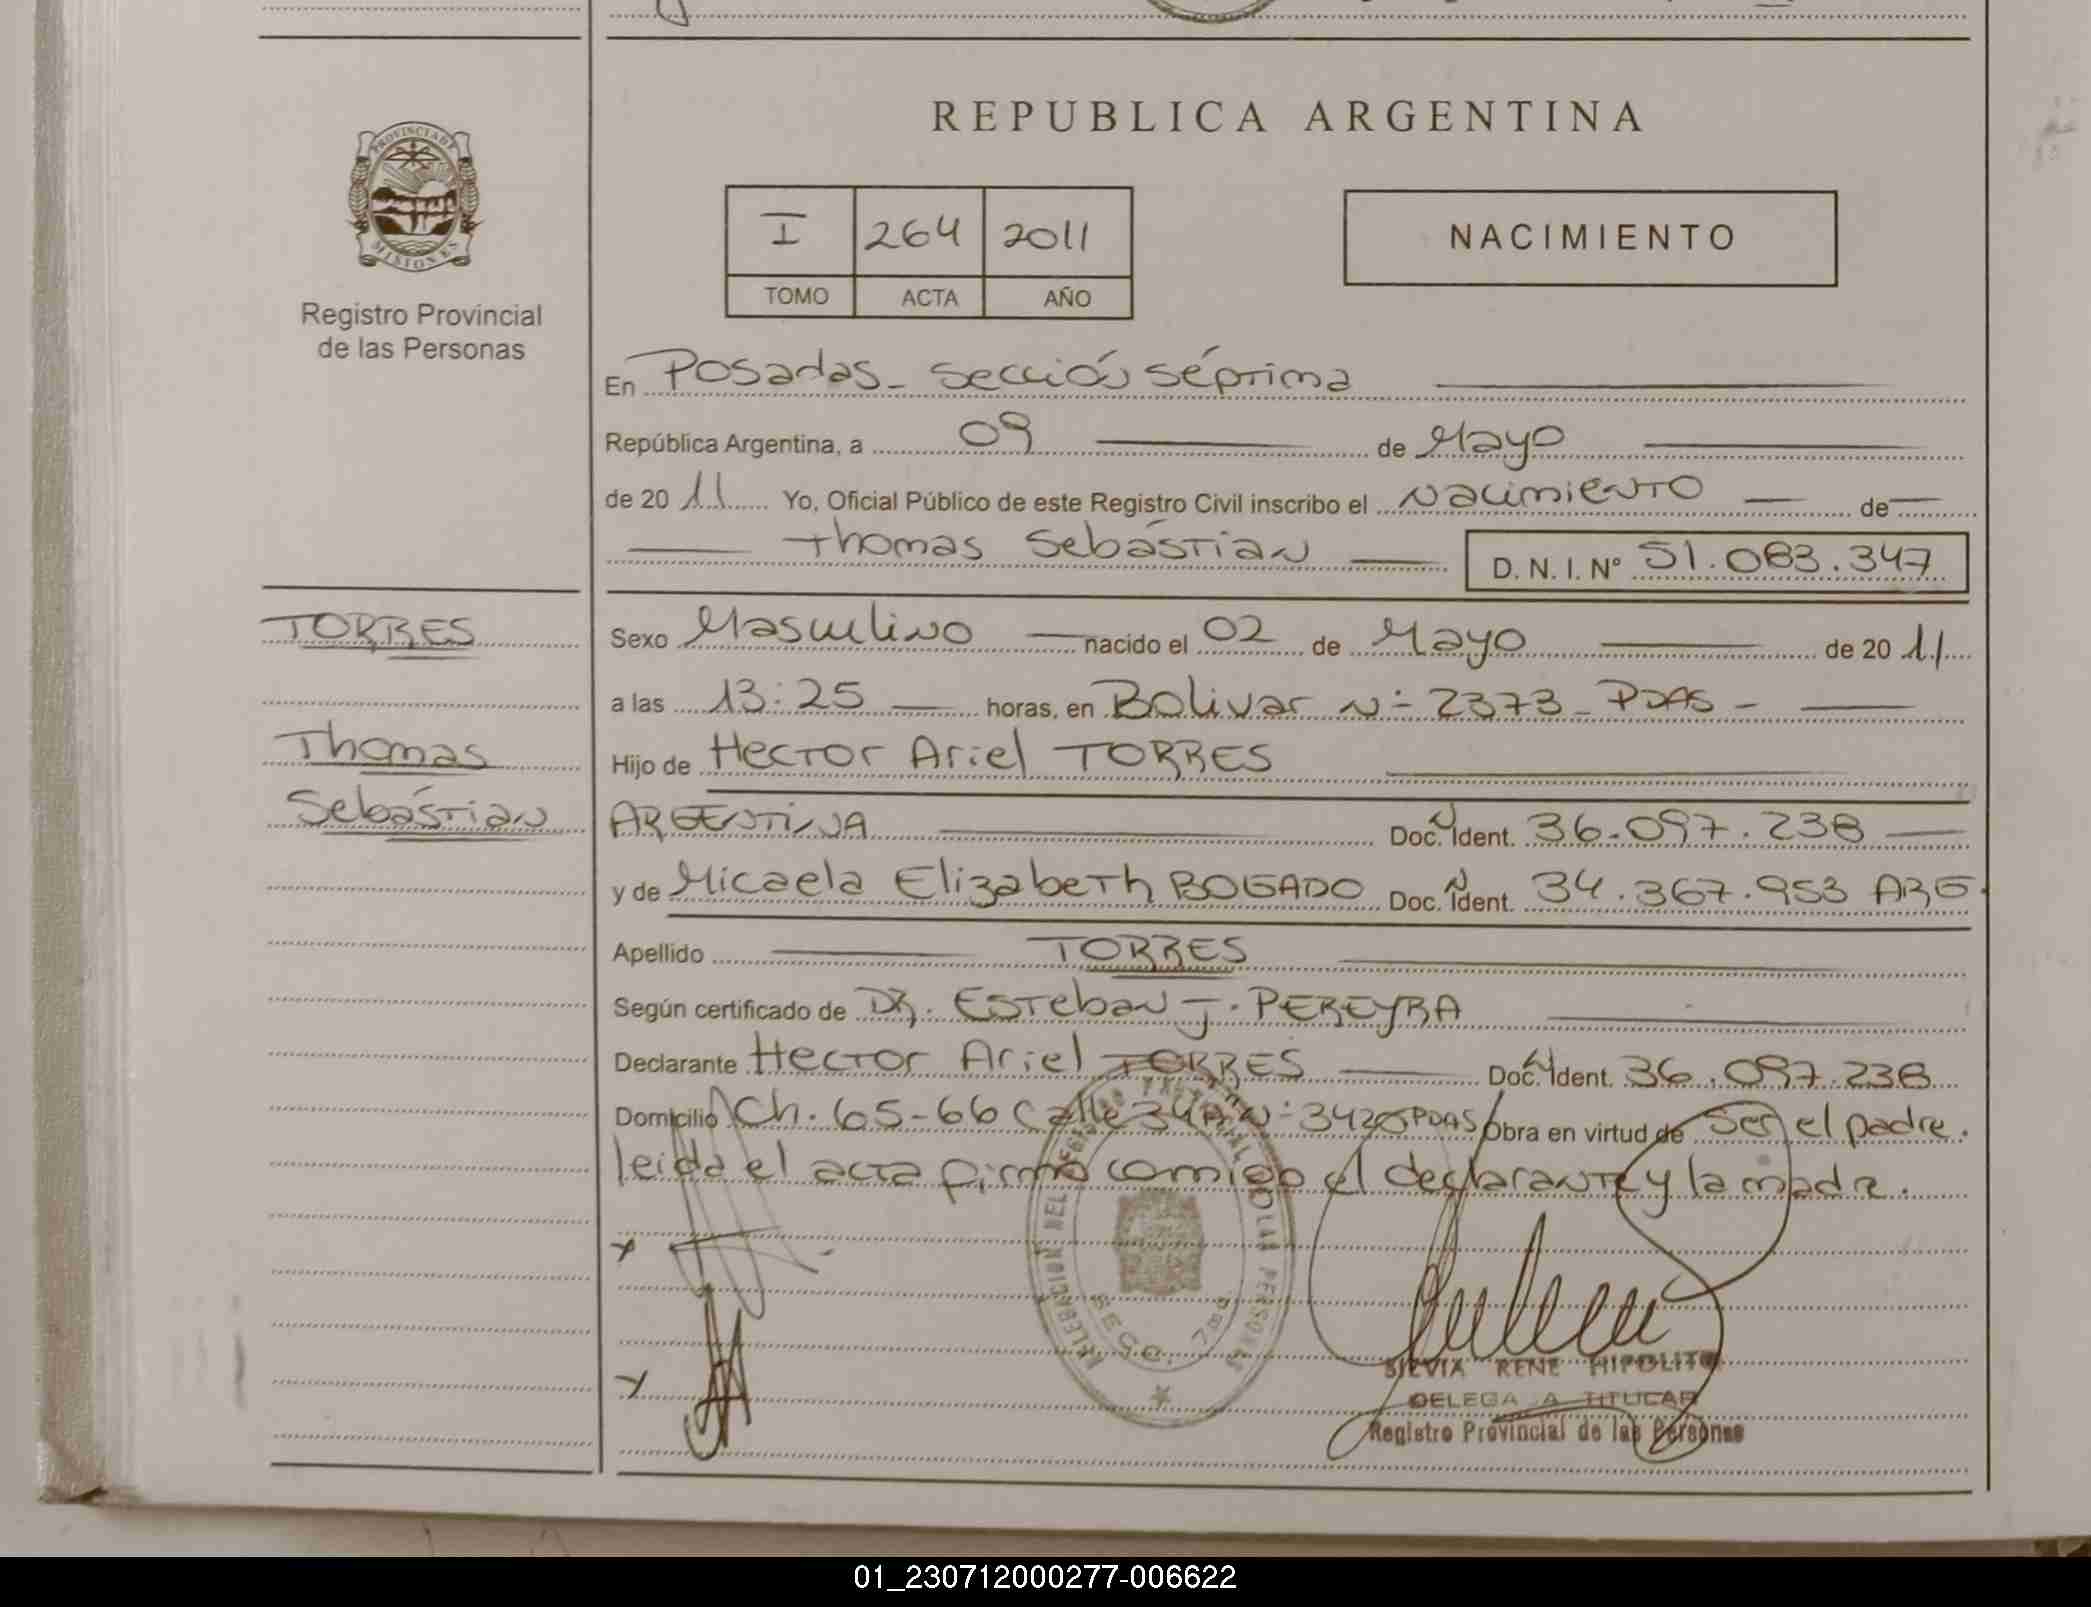 REPUBLICA ARGENTINA
PROVINCIA DE MISIONES
Registro Provincial
de las Personas
I 264 2011
TOMO ACTA AÑO
NACIMIENTO
En Posadas - sección séptima
República Argentina, a 09 de Mayo
de 20 11 Yo, Oficial Público de este Registro Civil inscribo el Nacimiento de
Thomas Sebástian D. N. I. Nº 51.083.347
TORRES
Thomas
Sebástian
Sexo Masculino nacido el 02 de Mayo de 20 11
a las 13:25 horas, en Bolivar N- 2373 - PDAS -
Hijo de Hector Ariel TORRES
ARGENTINA Doc. N Ident. 36.097.238
y de Micaela Elizabeth BOGADO Doc. N Ident. 34.367.953 ARG.
Apellido TORRES
Según certificado de DR. Esteban J. PEREYRA
Declarante Hector Ariel TORRES Doc. N Ident. 36.097.238
Domicilio Ch. 65-66 Calle 34 N- 3420 PDAS Obra en virtud de ser el padre.
leida el acta firma comigo el declarante y la madre.
SECC. 7ma
SILVIA RENE HIPOLITO
DELEGADA TITULAR
Registro Provincial de las Personas
01_230712000277-006622